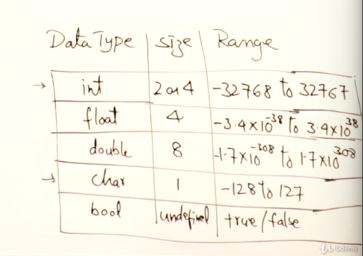 Data Type | size | Range
→ int | 2 or 4 | -32768 to 32767
float | 4 | -3.4×10⁻³⁸ to 3.4×10³⁸
double | 8 | -1.7×10⁻³⁰⁸ to 1.7×10³⁰⁸
→ char | 1 | -128 to 127
bool | undefined | true/false
Udemy